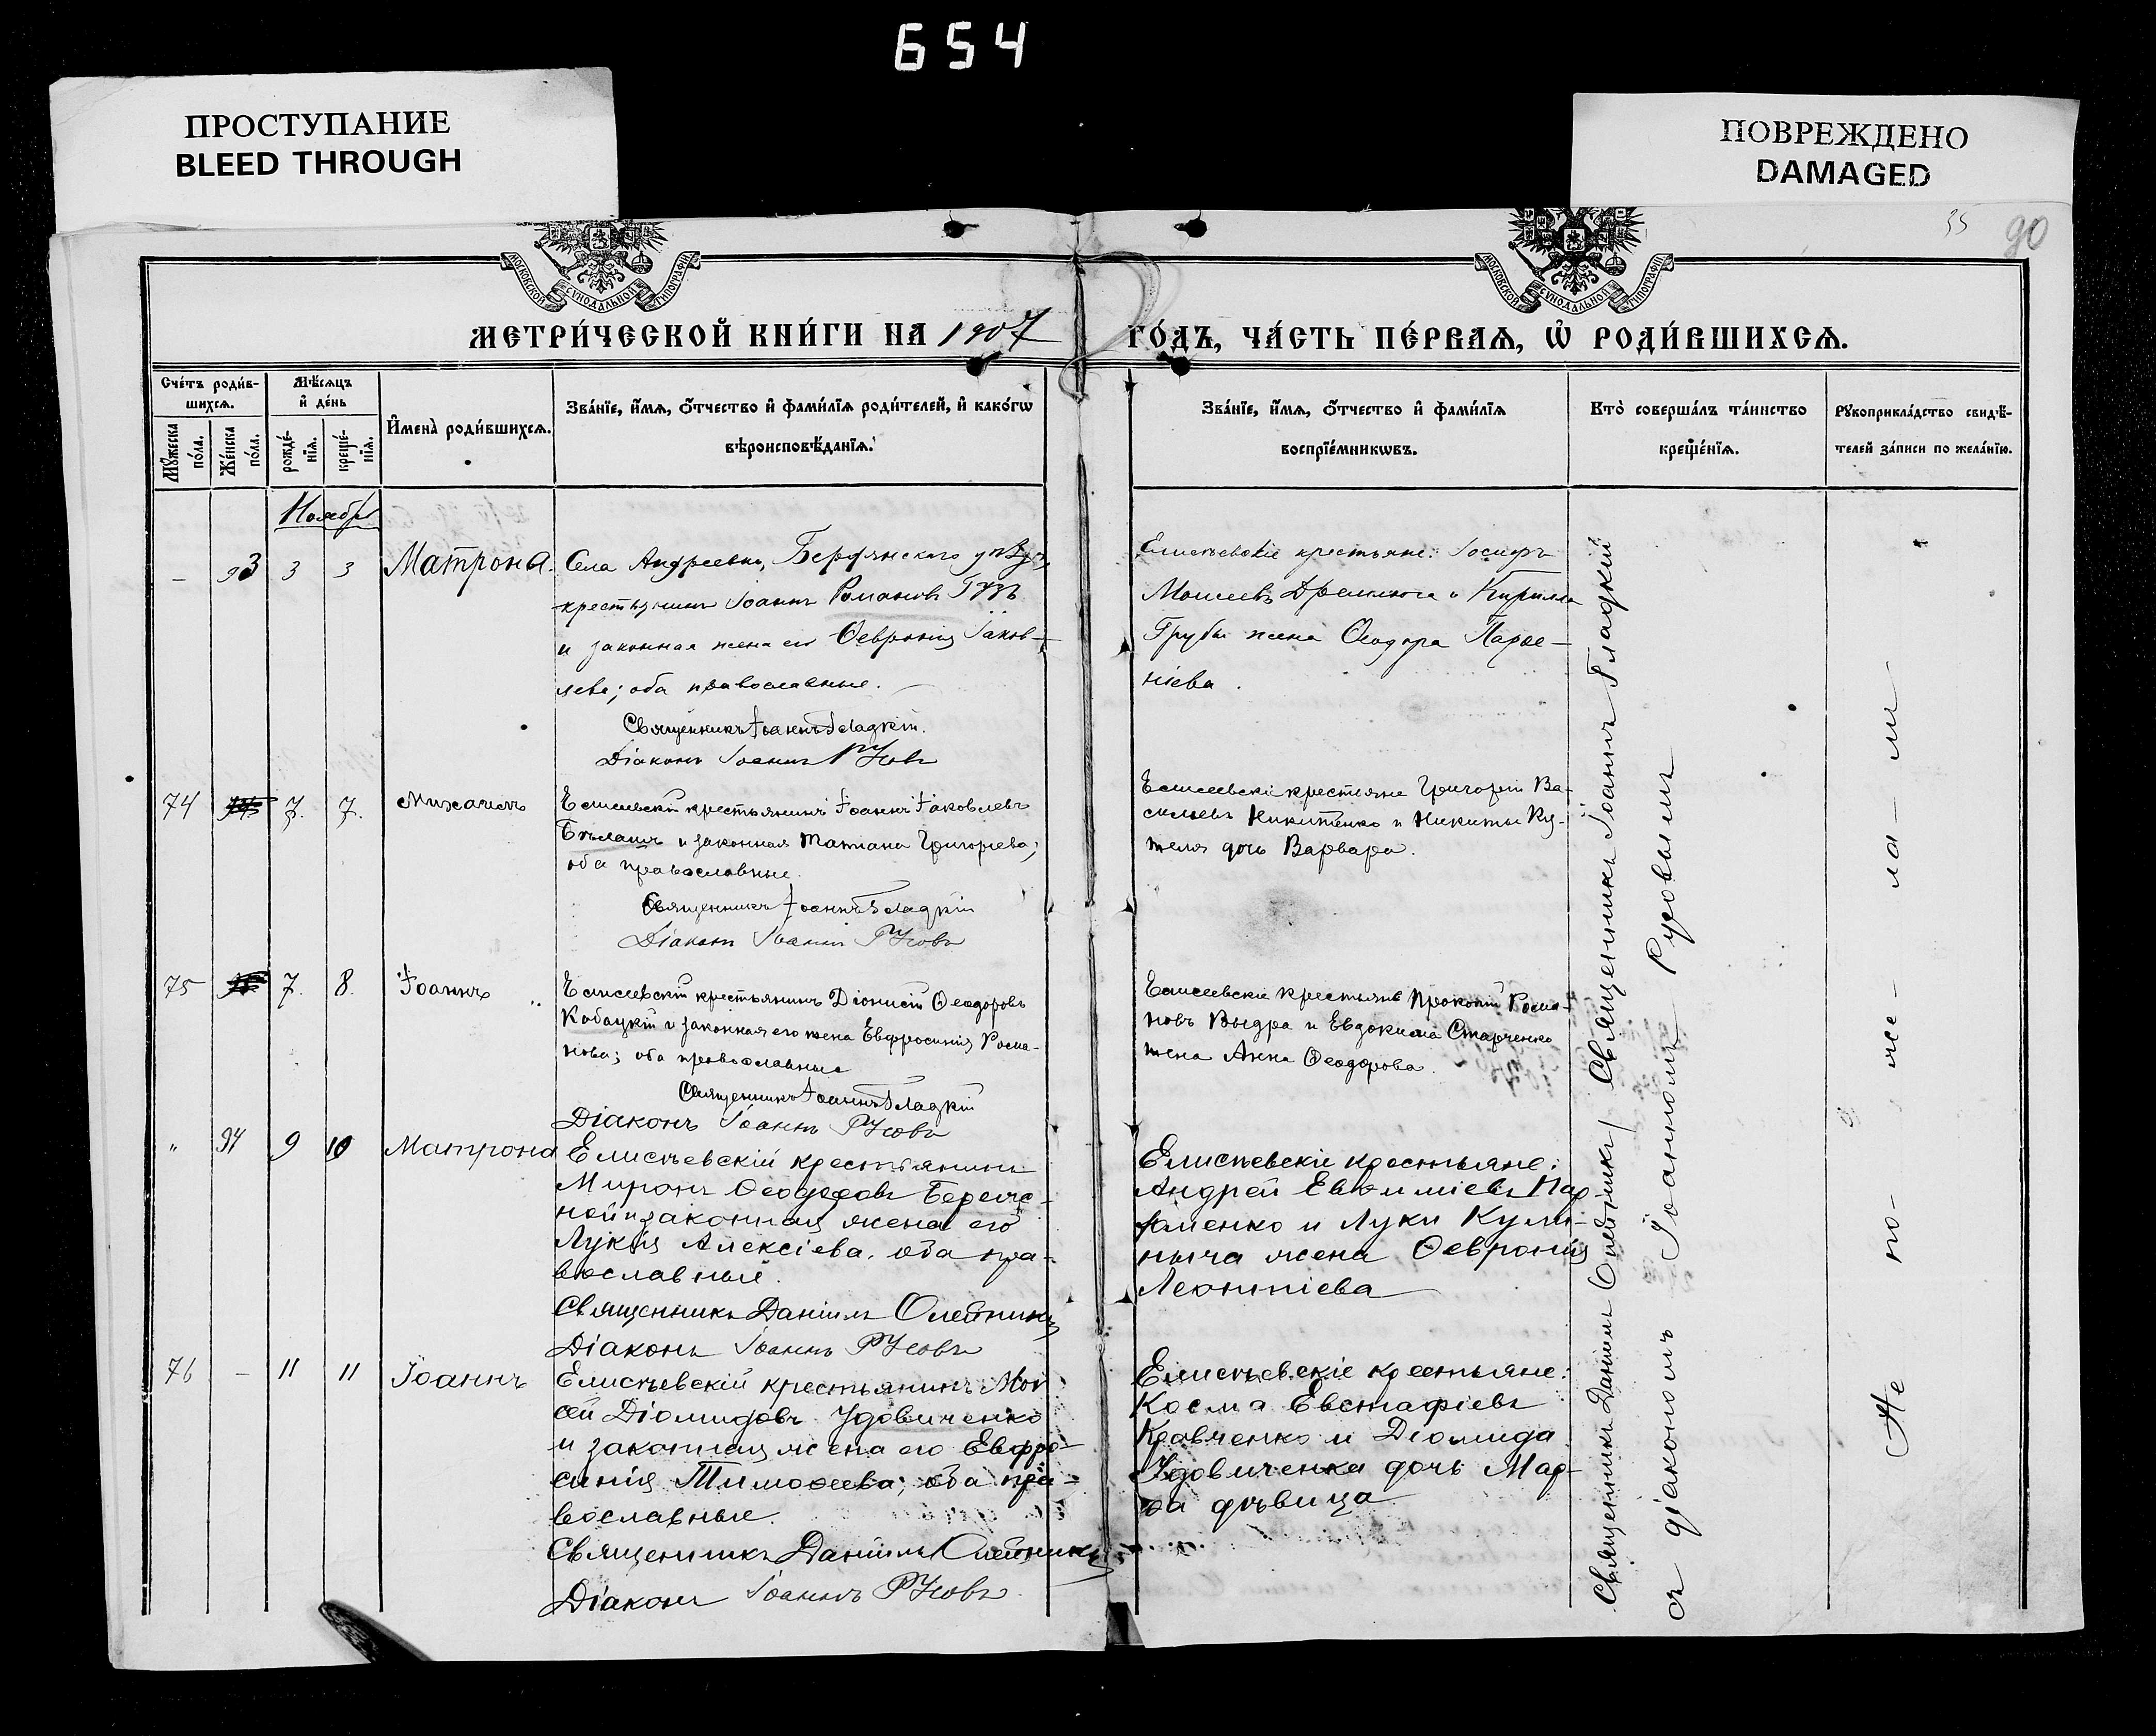 654
ПРОСТУПАНИЕ
BLEED THROUGH
ПОВРЕЖДЕНО
DAMAGED
35
90
МОСКОВСКОЙ СѴНОДАЛЬНОЙ ТИПОГРАФІИ
МОСКОВСКОЙ СѴНОДАЛЬНОЙ ТИПОГРАФІИ
МЕТРИ́ЧЕСКОЙ КНИ́ГИ НА 1907
ГО́ДЪ, ЧА́СТЬ ПЕ́РВАѦ, Ѽ РОДИ́ВШИХСѦ.
Сче́тъ роди́в-
шихсѧ.
Мѣ́сѧцъ
и҆ де́нь
Мꙋ́жеска
по́ла.
Же́нска
по́ла.
рожде́-
нїѧ.
креще́-
нїѧ.
И҆мена̀ роди́вшихсѧ.
Зва́нїе, и҆́мѧ, ѻ҆́тчество и҆ фами́лїѧ роди́телей, и҆ како́гѡ
вѣроисповѣ́данїѧ.
Зва́нїе, и҆́мѧ, ѻ҆́тчество и҆ фами́лїѧ
воспрїе́мникѡвъ.
Кто̀ соверша́лъ та́инство
креще́нїѧ.
Рꙋкоприкла́дство свидѣ́-
телей за́писи по жела́нїю.
Ноябрь
– 93 3 3 Матрона.
Села Андреевки, Бердянскаго уѣзда
крестьянинъ Іоаннъ Романовъ Гузъ
и законная жена его Ѳевронія Іаков-
лева; оба православные.
Священникъ Іоаннъ Гладкій.
Діаконъ Іоаннъ Русовъ
Елисѣевскіе крестьяне: Іосифъ
Моисеевъ Дремлюга и Кирилла
Грубы жена Ѳеодора Парѳе-
ніева.
74 7. 7. Михаилъ
Елисеевскій крестьянинъ Іоаннъ Іаковлевъ
Бѣлашъ и законная Татіана Григоріева;
оба православные.
Священникъ Іоаннъ Гладкій
Діаконъ Іоаннъ Русовъ
Елисеевскіе крестьяне Григорій Ва-
сильевъ Никитенко и Никиты Ку-
теля дочь Варвара.
75 7. 8. Іоаннъ
Елисеевскій крестьянинъ Діонисій Ѳеодоровъ
Кобацкій и законная его жена Евфросинія Рома-
нова; оба православные
Священникъ Іоаннъ Гладкій
Діаконъ Іоаннъ Русовъ
Елисеевскіе крестьяне Прокопій Рома-
новъ Выдра и Евдокима Старченко
жена Анна Ѳеодорова.
" 94 9 10 Матрона
Елисѣевскій крестьянинъ
Миронъ Ѳеодоровъ Береж-
ной и законная жена его
Лукія Алексіева. оба пра-
вославные.
Священникъ Даніилъ Олейникъ
Діаконъ Іоаннъ Русовъ
Елисѣевскіе крестьяне:
Андрей Евѳиміевъ Пар-
фименко и Луки Кули-
ныча жена Ѳевронія
Леонтіева
76 – 11 11 Іоаннъ
Елисѣевскій крестьянинъ Мои
сей Діомидовъ Удовиченко
и законная жена его Евфро-
синія Тимоѳеева; оба пра-
вославные.
Священникъ Даніилъ Олейникъ
Діаконъ Іоаннъ Русовъ
Елисѣевскіе крестьяне:
Косма Евстафіевъ
Кравченко и Діомида
Удовиченка дочь Мар-
ѳа дѣвица
Священникъ Даніилъ Олейникъ / Священникъ Іоаннъ Гладкій
съ діакономъ Іоанномъ Русовымъ
Не по- же- ла- ли